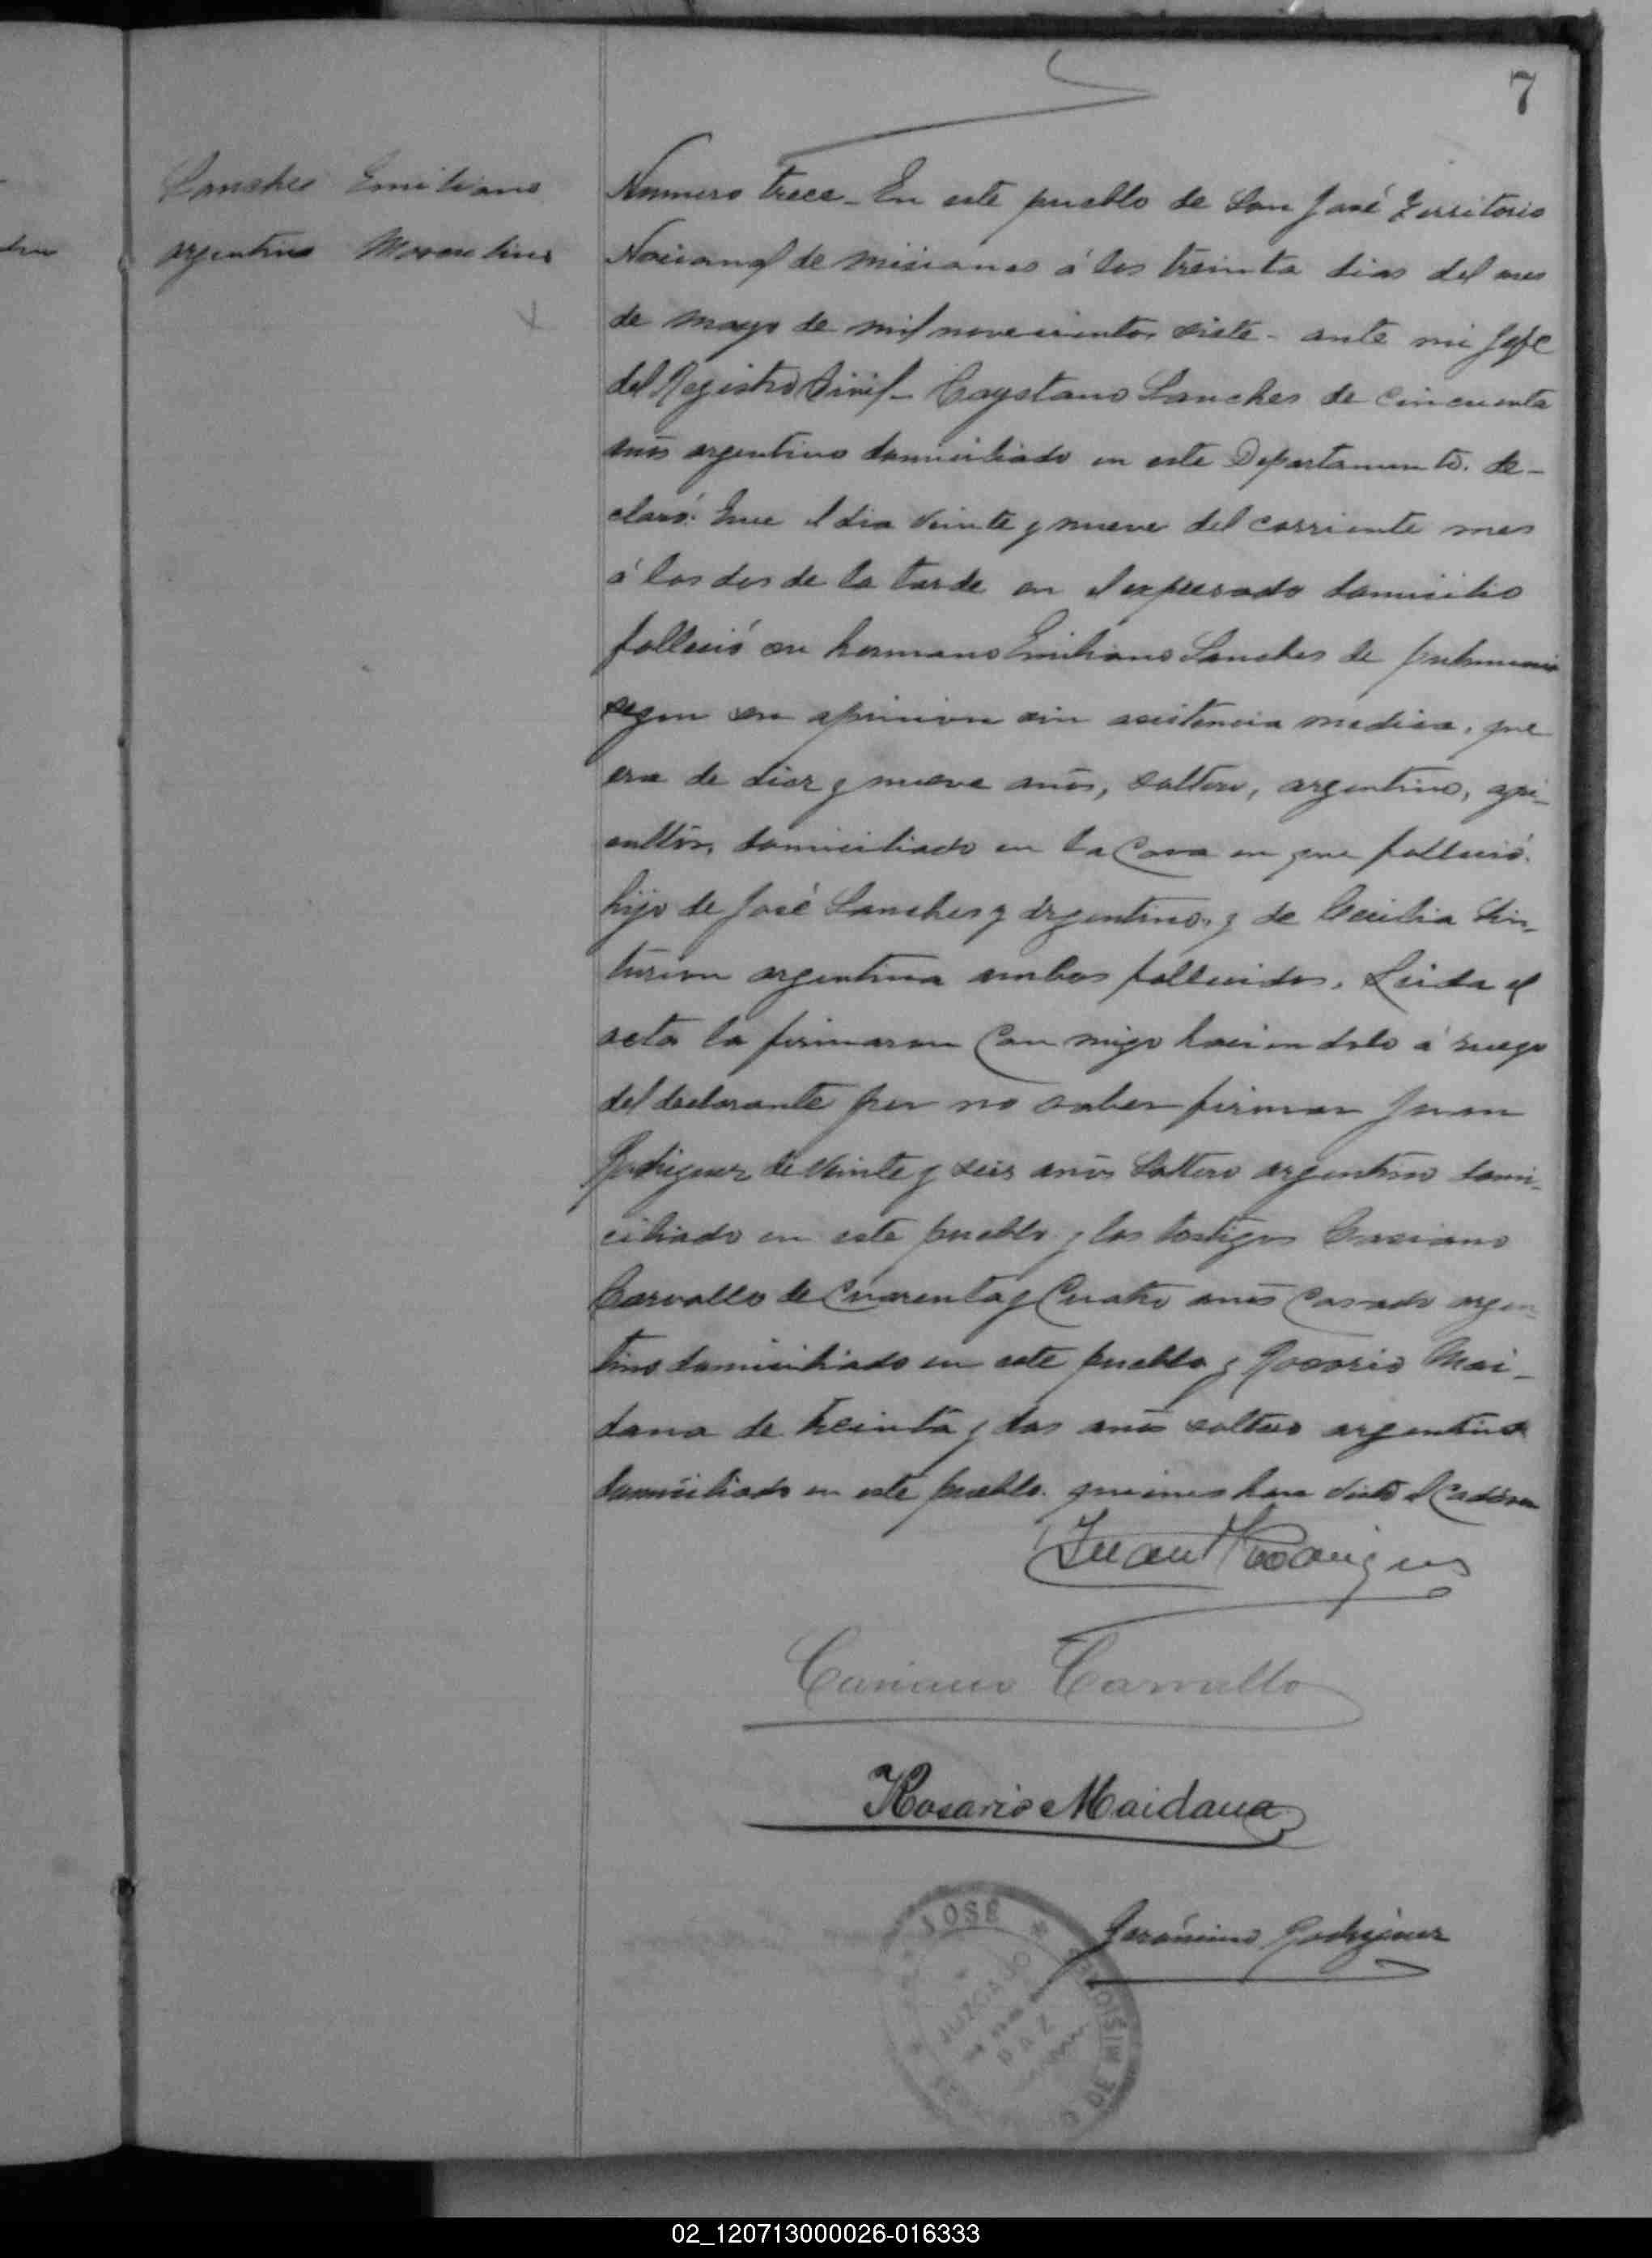 7
Sanches Emiliano
argentino Masculino
Numero trece_ En este pueblo de San José Territorio
Nacional de Misiones á los treinta dias del mes
de mayo de mil novecientos siete - ante mi Jefe
del Registro Civil - Cayetano Sanches de cincuenta
años argentino domiciliado en este Departamento. de-
claró: Que el dia veinte y nueve del corriente mes
á las dos de la tarde en el expresado domicilio
falleció su hermano Emiliano Sanches de pulmonia
segun su opinion sin asistencia medica, que
era de diez y nueve años, soltero, argentino, agri-
cultor, domiciliado en la Casa en que falleció.
hijo de José Sanches y argentino, y de Cecilia Sin-
turion argentina ambos fallecidos. Leida el
acta la firmaron Con migo haciendolo á ruego
del declarante por no saber firmar Juan
Rodriguez de veinte y seis años Soltero argentino domi-
ciliado en este pueblo y los testigos
Carvallo de Cuarenta y Cuatro años Casado argen-
tino domiciliado en este pueblo y Rosario Mai-
dana de treinta y dos años soltero argentino
domiciliado en este pueblo. quienes han visto el Cadáver
Juan Rodrigues
Carvallo
Rosario Maidana
Gerónimo Rodriguez
JOSÉ * MISIONES
JUZGADO
PAZ
02_120713000026-016333